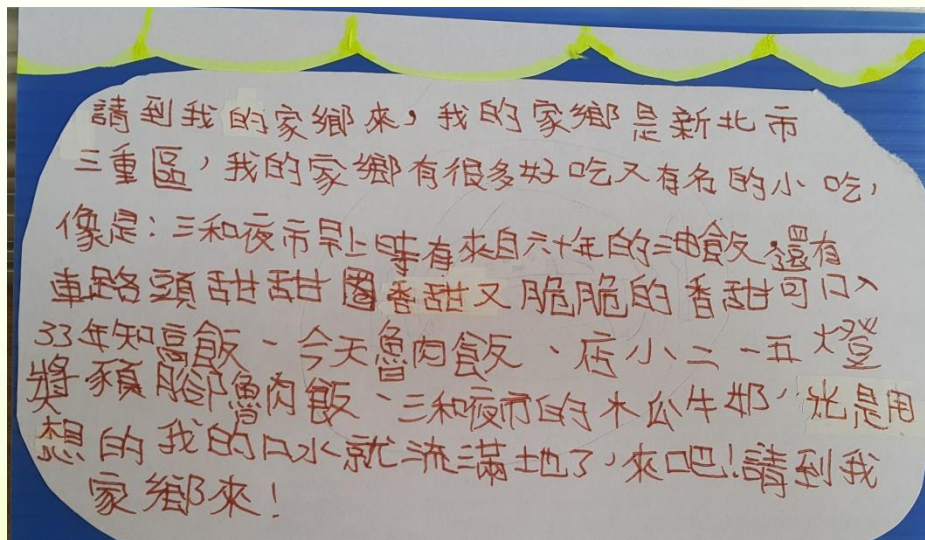 請到我的家鄉來，我的家鄉是新北市
三重區，我的家鄉有很多好吃又有名的小吃，
像是：三和夜市早上時有來自六十年的油飯、還有
車路頭甜甜圈香甜又脆脆的香甜可口入
33年知高飯、今天魯肉飯、店小二、五燈
獎豬腳魯肉飯、三和夜市的木瓜牛奶，光是用
想的我的口水就流滿地了，來吧！請到我
家鄉來！